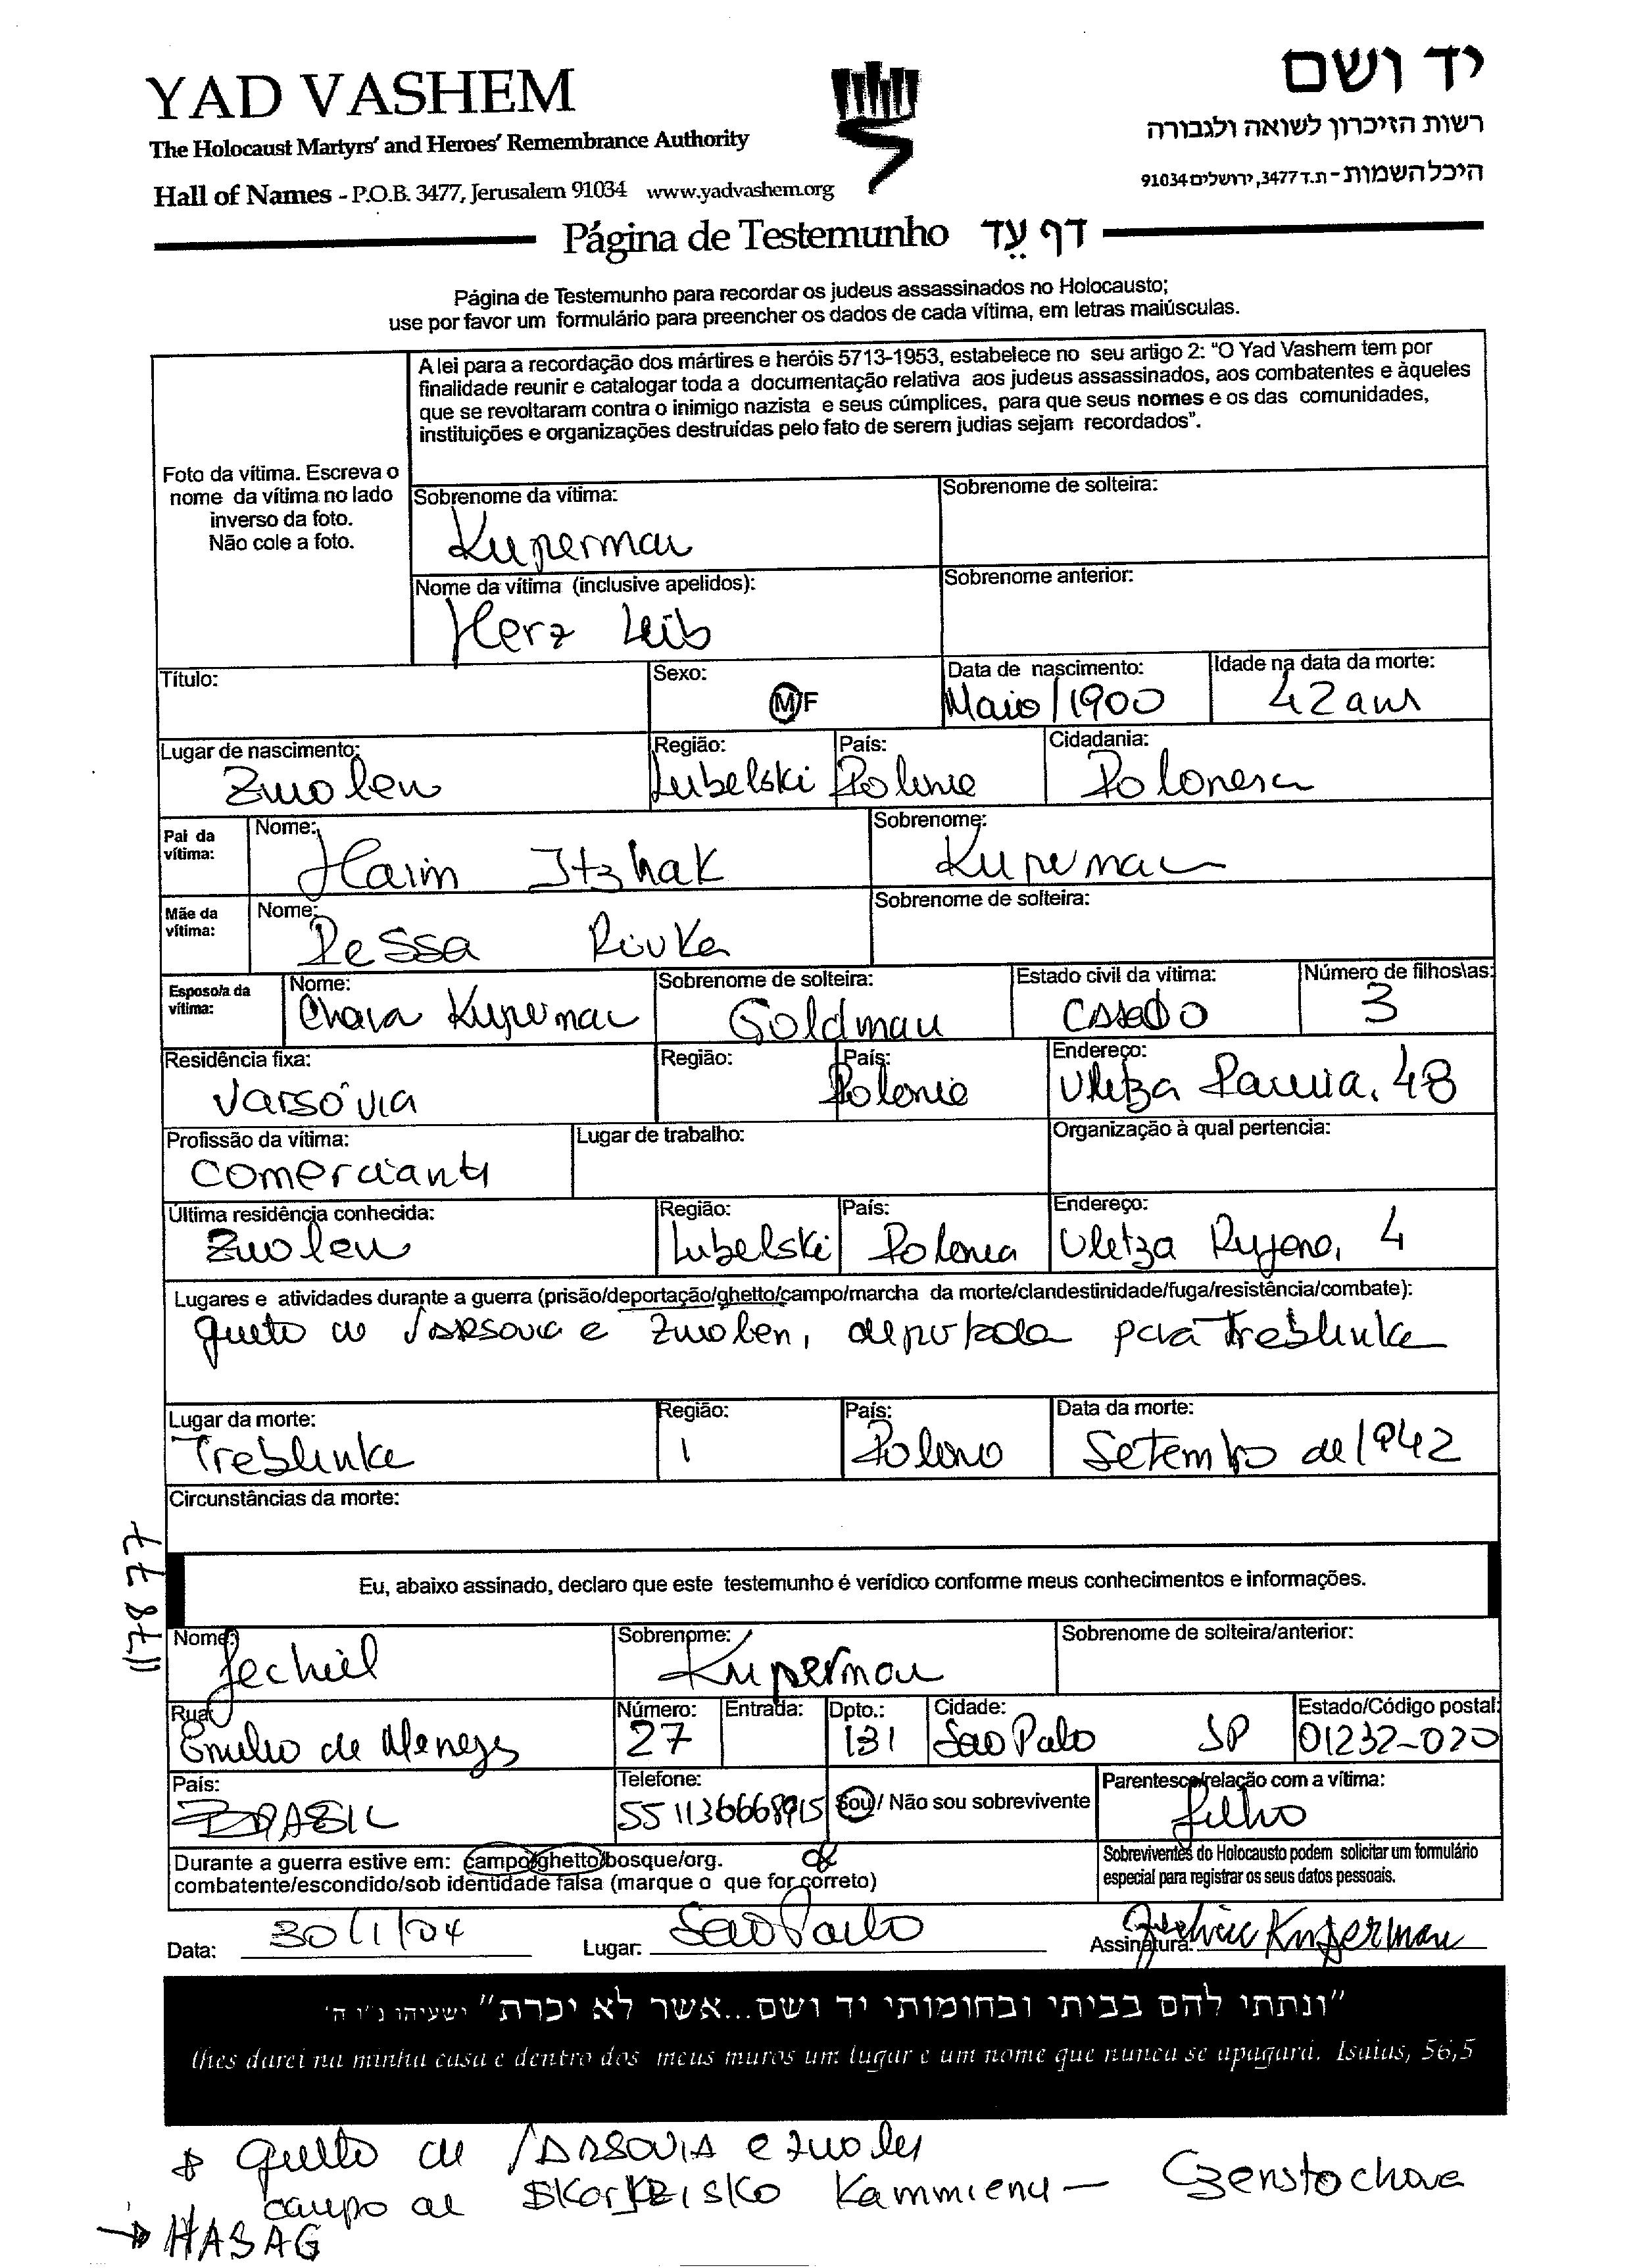 YAD VASHEM
The Holocaust Martyrs' and Heroes' Remembrance Authority
Hall of Names - P.O.B. 3477, Jerusalem 91034 www.yadvashem.org
יד ושם
רשות הזיכרון לשואה ולגבורה
היכל השמות - ת.ד 3477, ירושלים 91034
Página de Testemunho דף עֵד
Página de Testemunho para recordar os judeus assassinados no Holocausto;
use por favor um formulário para preencher os dados de cada vítima, em letras maiúsculas.
A lei para a recordação dos mártires e heróis 5713-1953, estabelece no seu artigo 2: "O Yad Vashem tem por
finalidade reunir e catalogar toda a documentação relativa aos judeus assassinados, aos combatentes e àqueles
que se revoltaram contra o inimigo nazista e seus cúmplices, para que seus nomes e os das comunidades,
instituições e organizações destruídas pelo fato de serem judias sejam recordados".
Foto da vítima. Escreva o
nome da vítima no lado
inverso da foto.
Não cole a foto.
Sobrenome da vítima: Sobrenome de solteira:
Kuperman
Nome da vítima (inclusive apelidos): Sobrenome anterior:
Herz Leib
Título: Sexo: M/F Data de nascimento: Idade na data da morte:
Maio/1900 42 anos
Lugar de nascimento: Região: País: Cidadania:
Zwolen Lubelski Polonia Polonesa
Pai da vítima: Nome: Sobrenome:
Haim Itzhak Kuperman
Mãe da vítima: Nome: Sobrenome de solteira:
Pessa Rivka
Esposo/a da vítima: Nome: Sobrenome de solteira: Estado civil da vítima: Número de filhos\as:
Chava Kuperman Goldman CASADO 3
Residência fixa: Região: País: Endereço:
Varsóvia Polonia Uletza Pawia, 48
Profissão da vítima: Lugar de trabalho: Organização à qual pertencia:
Comerciante
Última residência conhecida: Região: País: Endereço:
Zwolen Lubelski Polonia Uletza 4
Lugares e atividades durante a guerra (prisão/deportação/ghetto/campo/marcha da morte/clandestinidade/fuga/resistência/combate):
gueto de VARSOVIA e Zwolen, deportado para Treblinka
Lugar da morte: Região: País: Data da morte:
Treblinka Polono Setembro de 1942
Circunstâncias da morte:
Eu, abaixo assinado, declaro que este testemunho é verídico conforme meus conhecimentos e informações.
Nome: Sobrenome: Sobrenome de solteira/anterior:
Jechiel Kuperman
Rua: Número: Entrada: Dpto.: Cidade: Estado/Código postal:
Emilio de Menezes 27 131 Sao Paulo SP 01232-020
País: Telefone: Sou/ Não sou sobrevivente Parentesco/relação com a vítima:
BRASIL 551136668915 filho
Durante a guerra estive em: campo/ghetto/bosque/org.
combatente/escondido/sob identidade falsa (marque o que for correto)
Sobreviventes do Holocausto podem solicitar um formulário
especial para registrar os seus datos pessoais.
Data: 30/1/04 Lugar: Sao Paulo Assinatura: Jechiel Kuperman
"ונתתי להם בביתי ובחומותי יד ושם...אשר לא יכרת" ישעיהו נ"ו ה'
lhes darei na minha casa e dentro dos meus muros um lugar e um nome que nunca se apagará. Isaias, 56,5
* gueto de VARSOVIA e Zwolen
campo de Kammiena — Czenstochova
→ HASAG